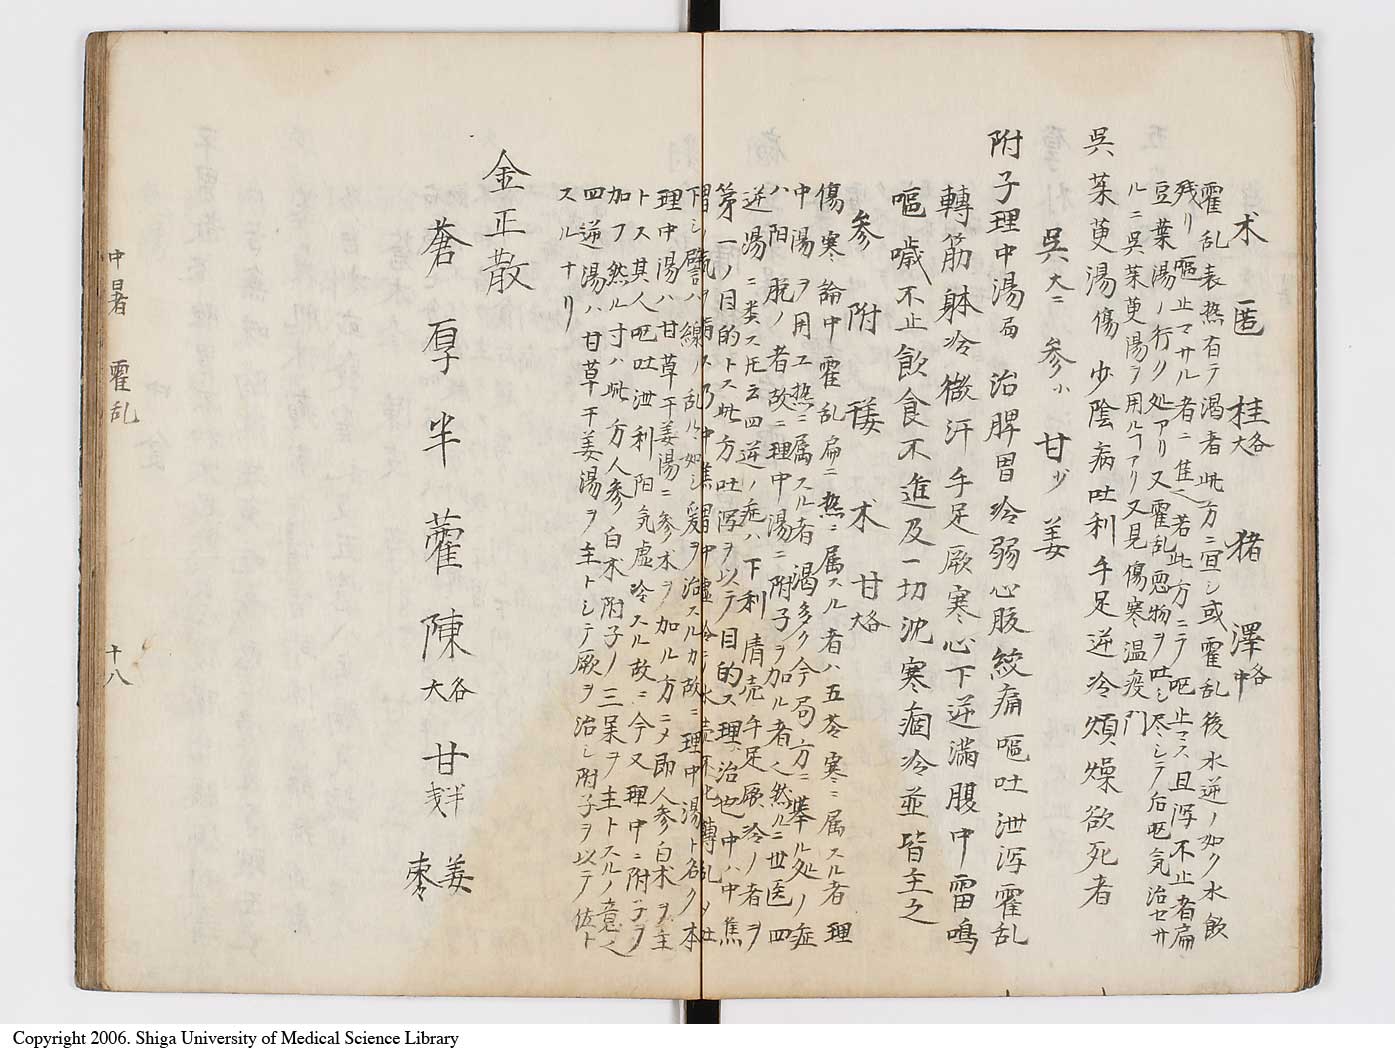 朮 匽 桂 猪 澤
大各 中各
霍乱表热有テ渇者此方ニ宜シ或霍乱後水逆ノ如ク水飲
残リ嘔止マサル者ニ佳也若此方ニテ呕止マス且泻不止者扁
豆葉湯ノ行ク処アリ又霍乱惡物ヲ吐シ尽シテ后呕気治セサ
ルニ呉茱萸湯ヲ用ルヿアリ又見傷寒温疫門
呉茱萸湯傷 少陰病吐利手足逆冷煩燥欲死者
呉大ニ 参小 甘少 姜
附子理中湯局 治脾胃冷弱心腹絞痛嘔吐泄泻霍乱
轉筋躰冷微汗手足厥寒心下逆満腹中雷鳴
嘔噦不止飲食不進及一切沈寒痼冷並皆主之
参 附 䕒 朮 甘大各
傷寒論中霍乱扁ニ热ニ属スル者ハ五苓寒ニ属スル者理
中湯ヲ用工热ニ属スル者渇多ク今局方ニ挙ル処ノ症
ハ阳脱ノ者故ニ理中湯ニ附子ヲ加ル者也然ルニ世医四
逆湯ニ类ス𪜈云四逆ノ症ハ下利清壳手足厥冷ノ者ヲ
第一ノ目的トス此方吐泻ヲ以テ目的ス理ハ治也中ハ中焦
理中湯ハ甘草干姜湯ニ参朮ヲ加ル方ニメ即人参白朮ヲ主
トス其人呕吐泄利阳気虚冷スル故ニ今又理中ニ附子ヲ
加フ然ル寸ハ此方人参白朮附子ノ三味ヲ主トスルノ意也
四逆湯ハ甘草干姜湯ヲ主トシテ厥ヲ治シ附子ヲ以テ佐ト
スルナリ
金正散
蒼 厚 半 藿 陳大各 甘 姜 棗
中暑 霍乱 十八